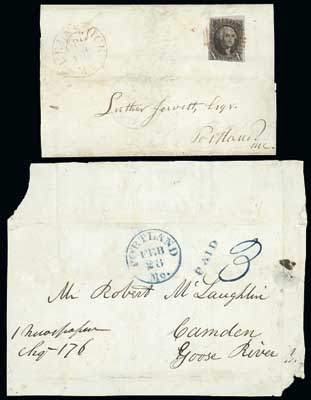 Luther Jewett, Esqr.
Portland
me.
PORTLAND
FEB
28
Me.
PAID
3
Mr Robert McLaughlin
1 newspaper
Camden
Chg- 176
Goose River